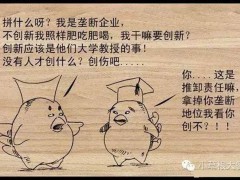 拼什么呀？我是垄断企业，
不创新我照样肥吃肥喝，我干嘛要创新？
创新应该是他们大学教授的事！
没有人才创什么？创伤吧.....
你....这是
推卸责任嘛，
拿掉你垄断
地位我看你
创不？！！